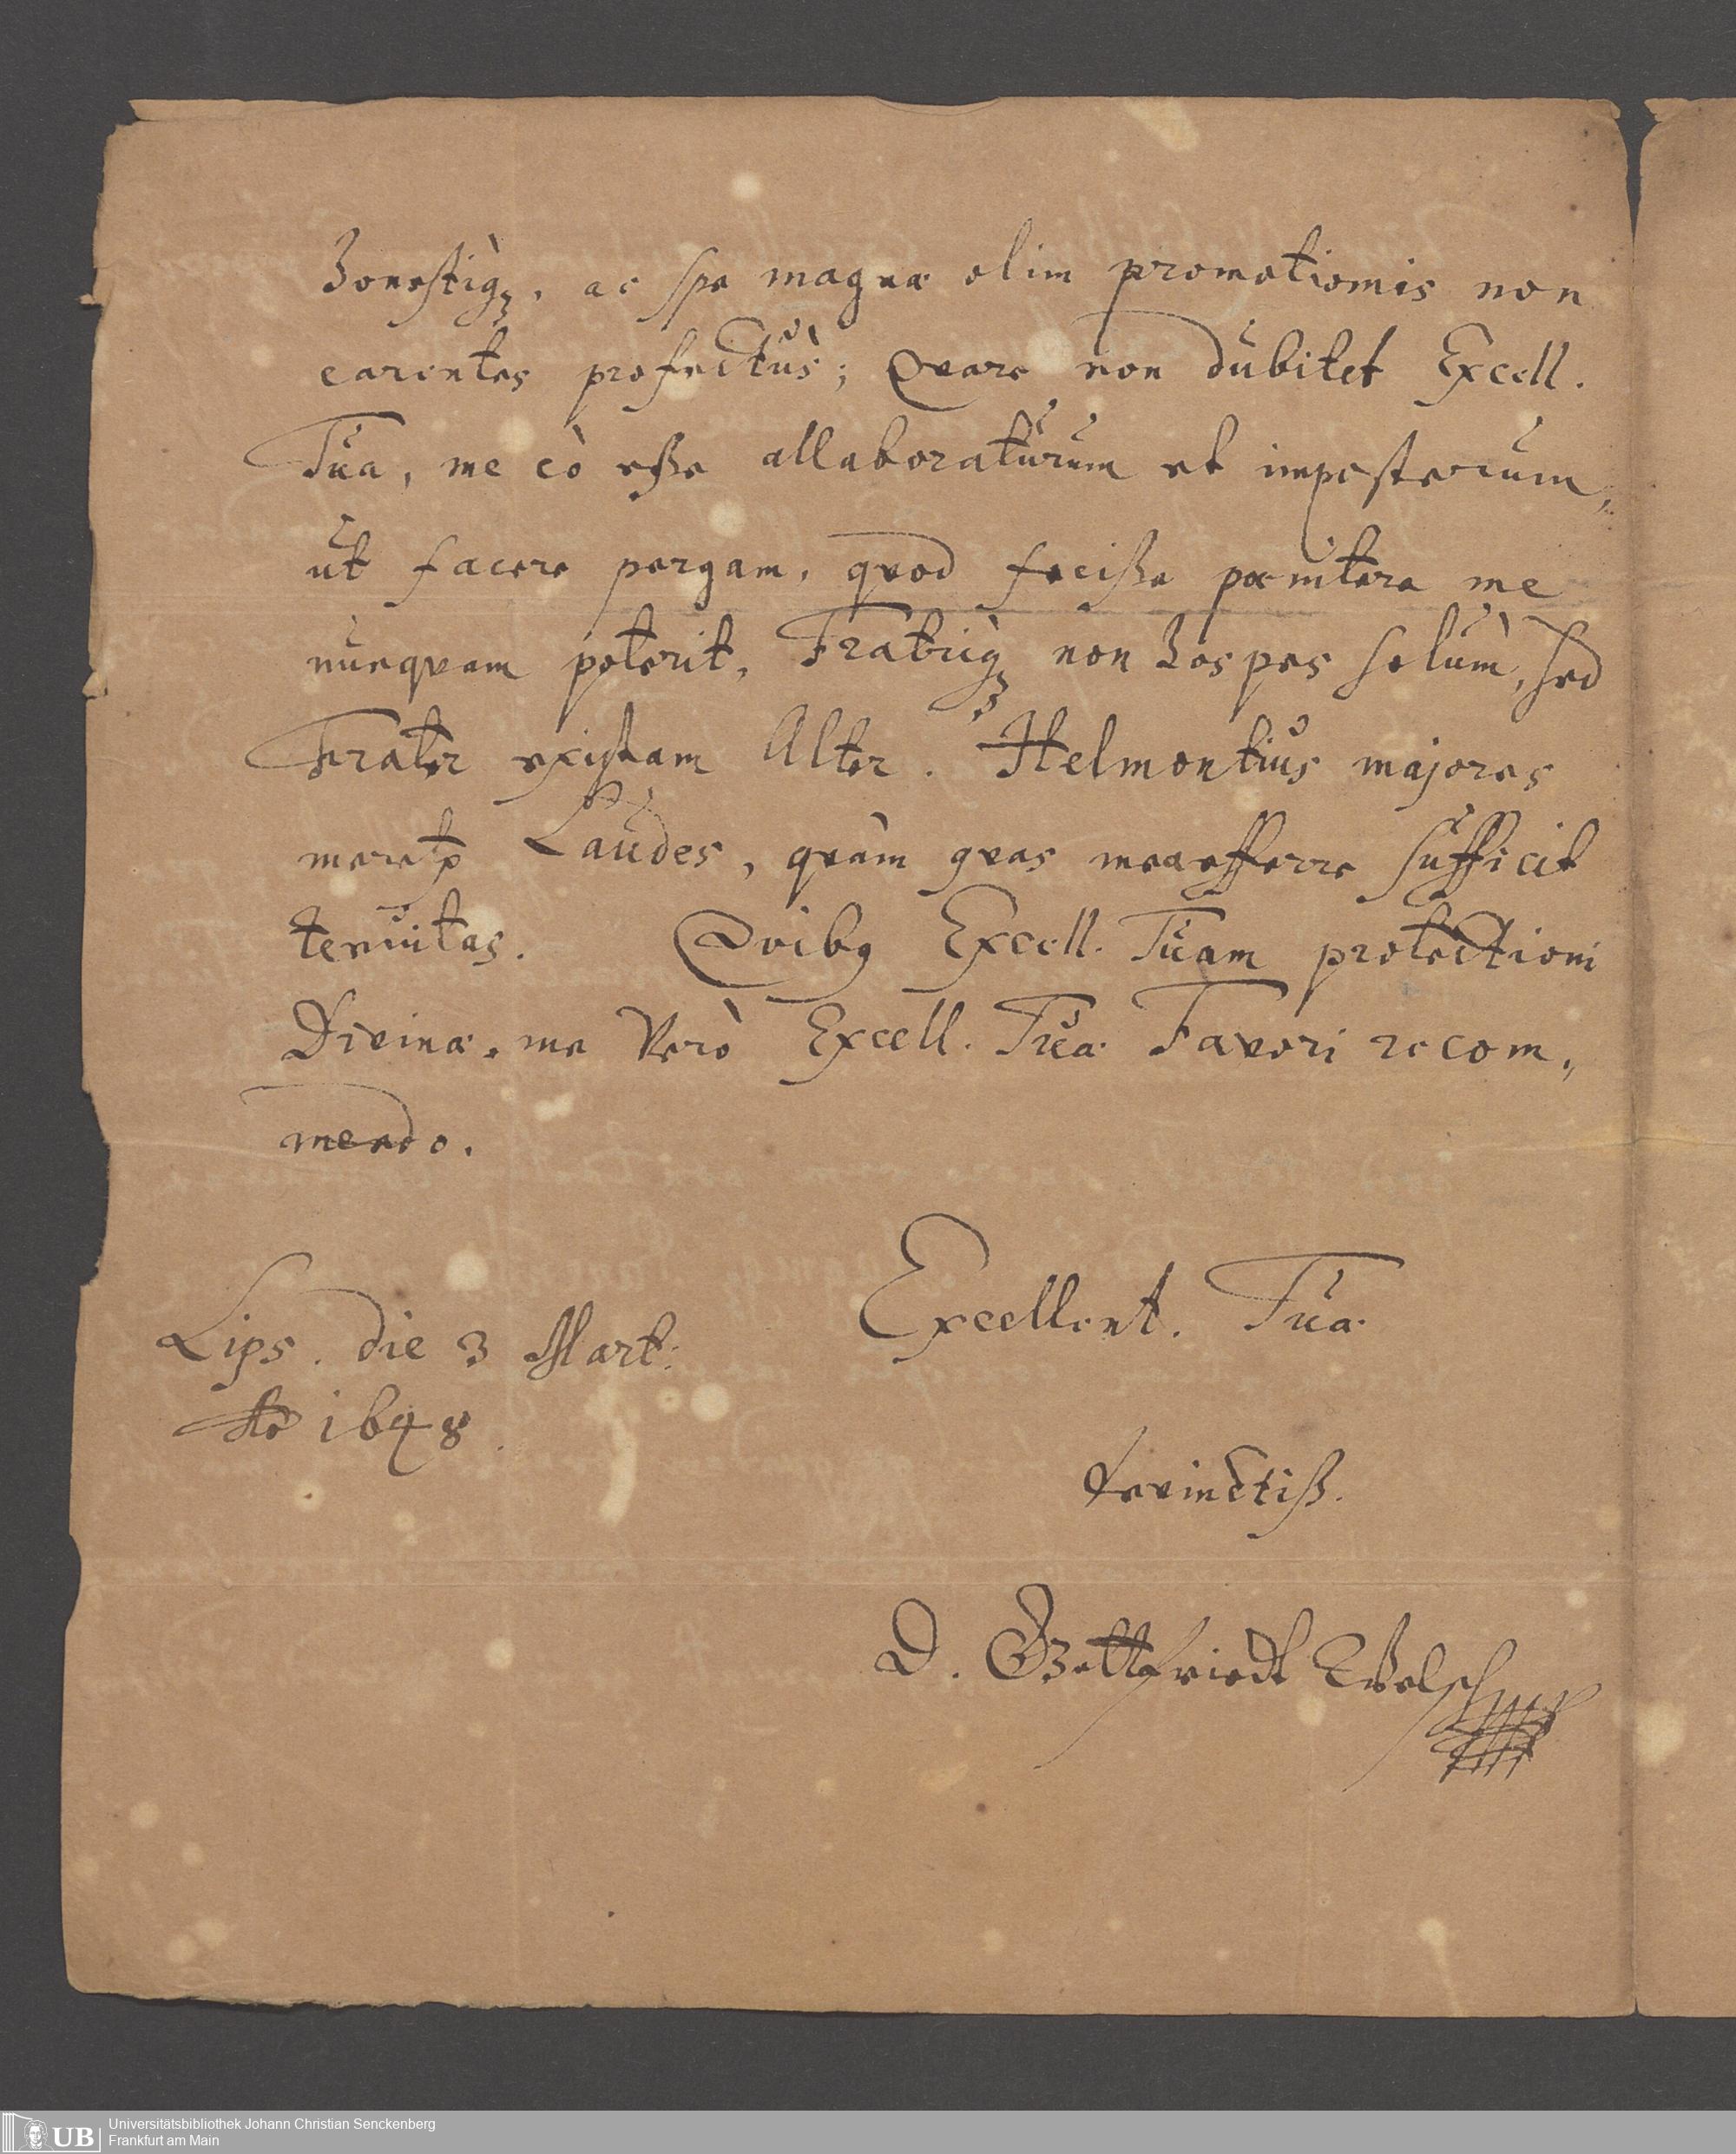 honestiq́ꝫ, ac spe magnæ olim promotionis non
carentes profectus; Qvare non dubitet Excell.
Tua, me eò esse allaboraturum et imposterum,
ut facere pergam, qvod fecisse pœnitere me
nunqvam poterit, Fratriq́ꝫ non hospes solùm, sed
Frater existam Alter. Helmontius majores
meret Laudes, qvàm qvas mea efferre sufficit
tenuitas. Qvibꝯ Excell. Tuam protectioni
Divinæ, me Verò Excell. Tuæ Favori recom„
mendo.
Excellent. Tuæ
Lips. die 3 Mart:
Aõ 1648.
devinctiss.
D. Gottfriedt Welsch
UB Universitätsbibliothek Johann Christian Senckenberg
Frankfurt am Main